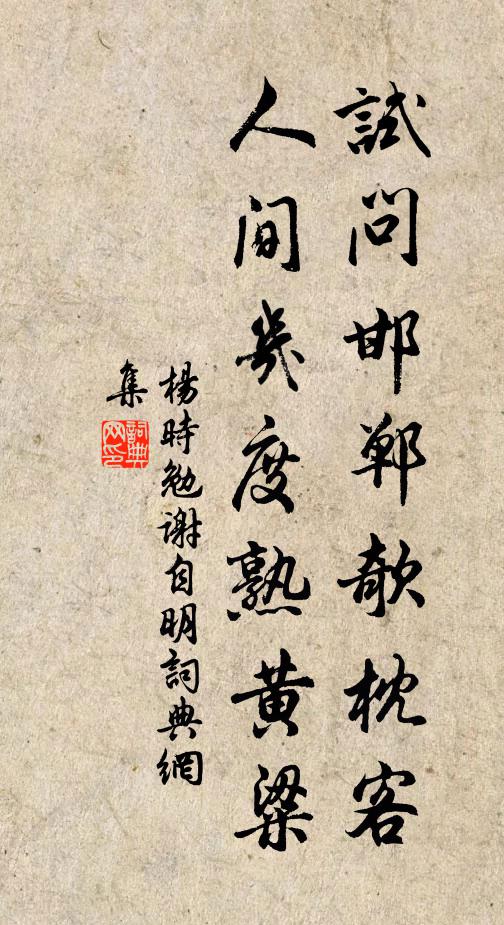 試問邯鄲欹枕客
人間幾度熟黄粱
楊時勉謝自明詞典網
集
詞典網印